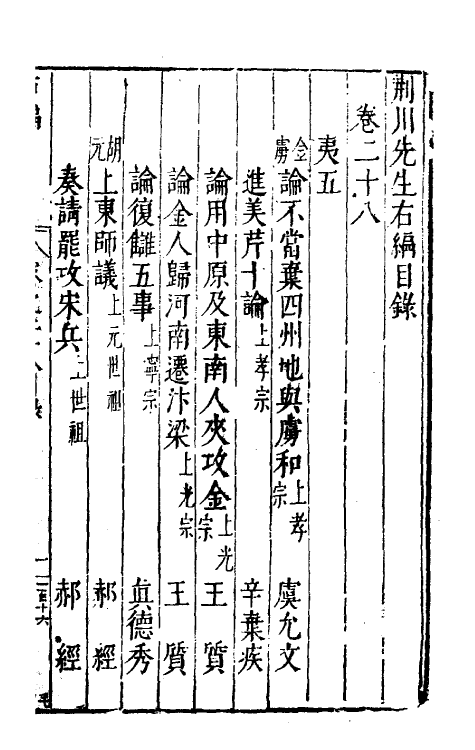 荆川先生右編目錄
卷二十八
夷五
金虜論不當棄四州地與虜和上孝宗 虞允文
進美芹十論上孝宗 辛棄疾
論用中原及東南人夾攻金上光宗 王質
論金人歸河南遷汴梁上光宗 王質
論復讎五事上寧宗 真德秀
胡元上東師議上元世祖 郝經
奏請罷攻宋兵上世祖 郝經